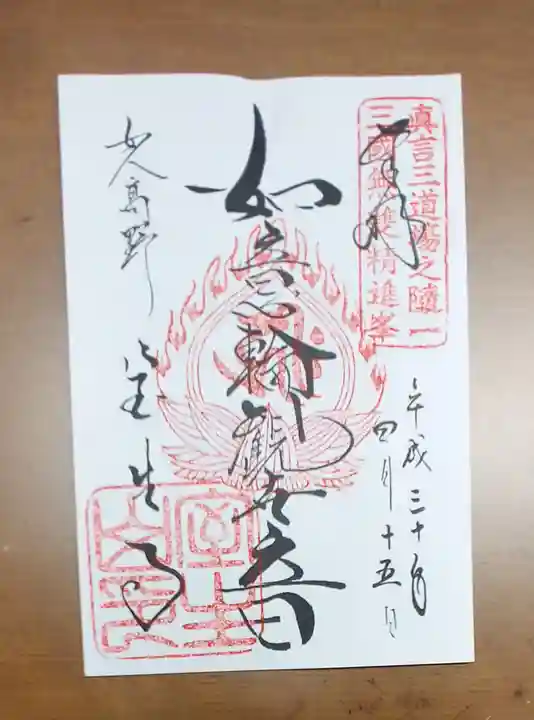 奉拝
真言三道場之随一
三國無雙精進峯
平成三十年
四月十五日
如意輪観世音
女人高野
室生寺